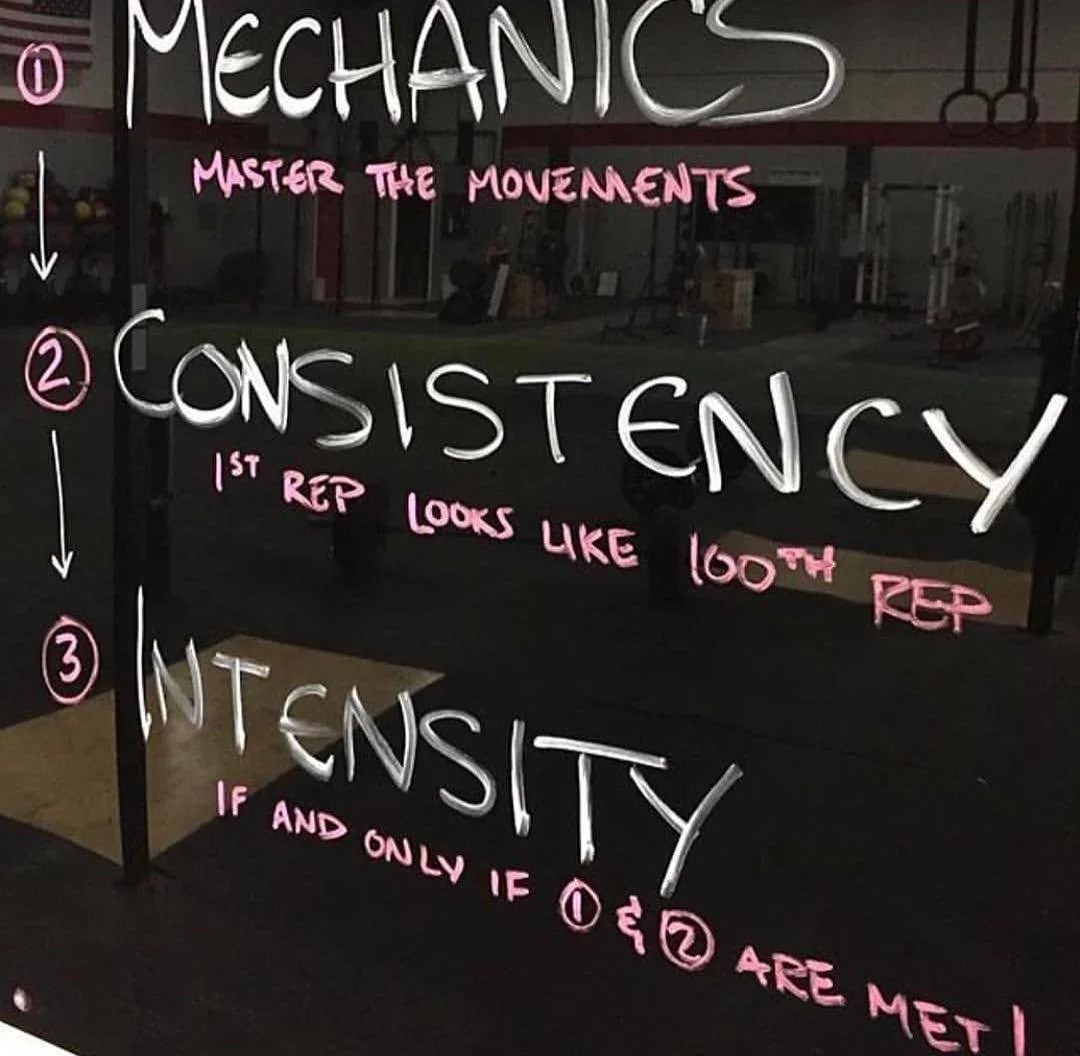 ① MECHANICS
MASTER THE MOVEMENTS
② CONSISTENCY
1ST REP LOOKS LIKE 100TH REP
③ INTENSITY
IF AND ONLY IF ① & ② ARE MET!